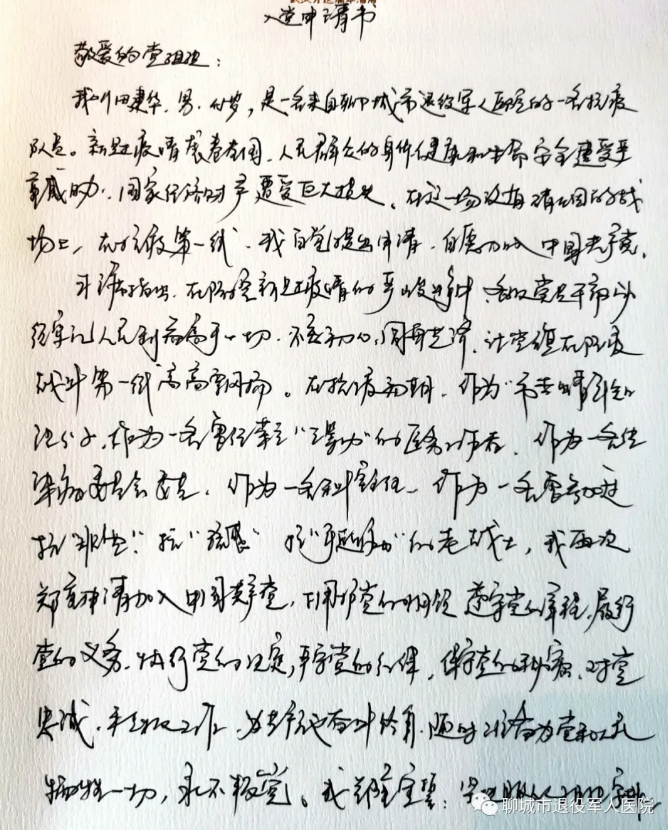 入党申请书
敬爱的党组织：
我叫田秉华，男，岁，是一名来自聊城市退役军人医院的一名抗疫
队员。新冠疫情席卷全国，人民群众的身体健康和生命安全遭受严
重威胁，国家经济财产遭受巨大损失，在这一场没有硝烟的战
场上，在抗疫第一线，我自觉提出申请，自愿加入中国共产党。
指出，在防控新冠疫情的严峻斗争中，各级党员干部
牢记人民利益高于一切，不忘初心，同舟共济，让党旗在防疫
战斗第一线高高飘扬。在抗疫前期，作为
作为一名曾经荣立“三等功”的医务工作者，作为一名传
染病委员会委员，作为一名科室主任，作为一名曾参加过
抗“非典”，抗“流感”的老战士，我再次
郑重申请加入中国共产党，拥护党的纲领，遵守党的章程，履行
党的义务，执行党的决定，严守党的纪律，保守党的秘密，对党
忠诚，积极工作，为共产主义奋斗终身，随时准备为党和人民
牺牲一切，永不叛党。我郑重宣誓：
聊城市退役军人医院